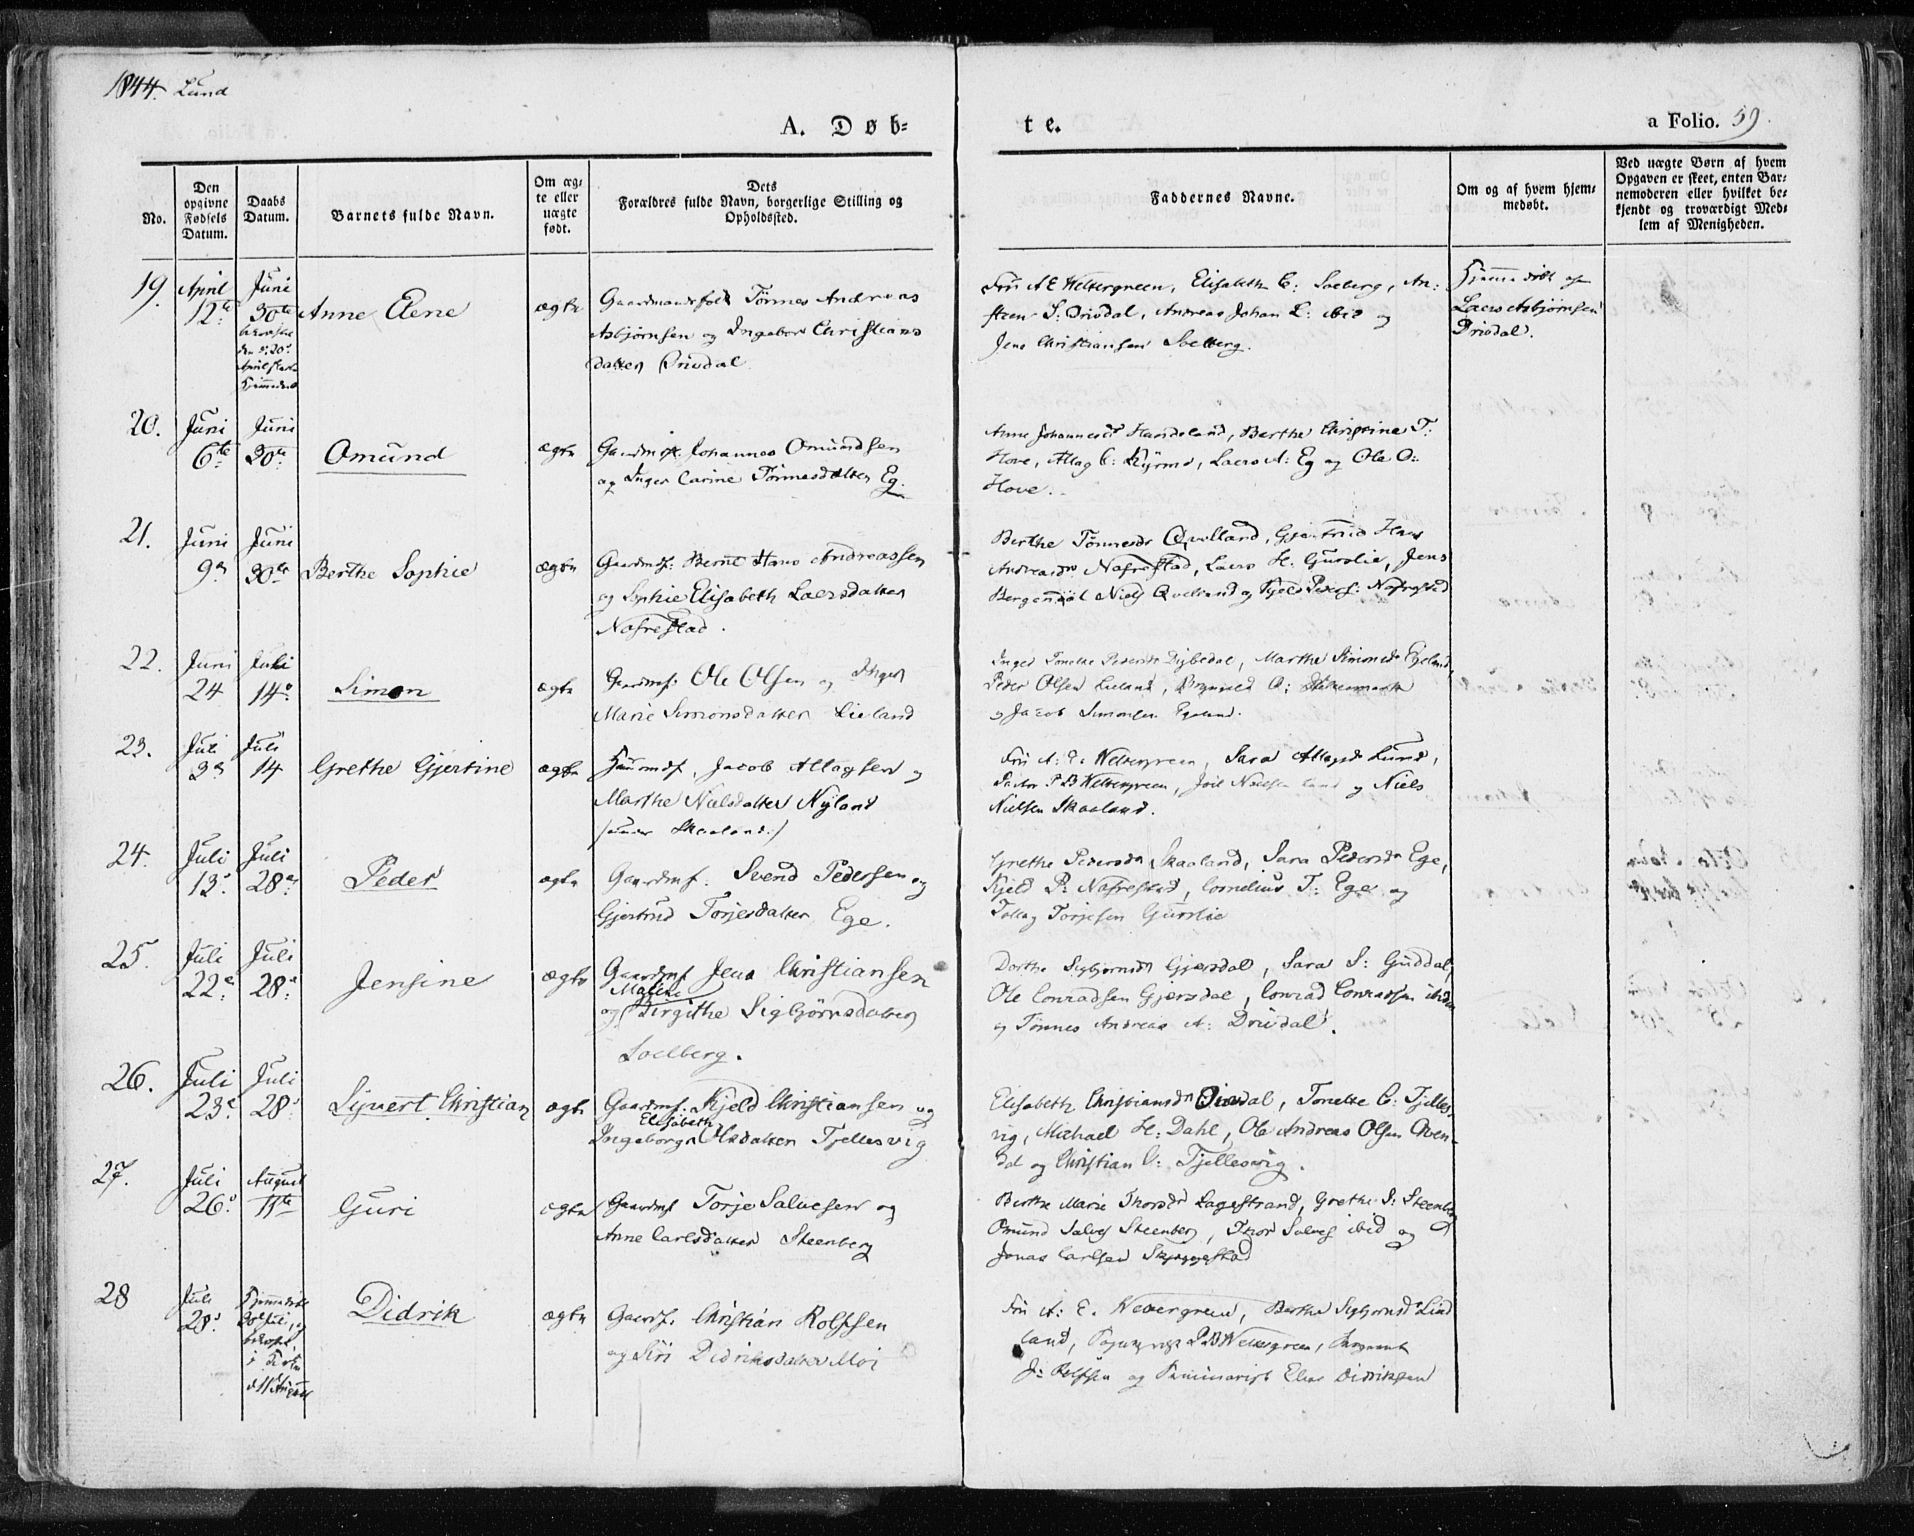 1844. Lund
A. Døb-
te.
a Folio. 59.
No.
Den
opgivne
Fødsels
Datum.
Daabs
Datum.
Barnets fulde Navn.
Om æg-
te eller
uægte
født.
Dets
Forældres fulde Navn, borgerlige Stilling og
Opholdssted.
Faddernes Navne.
Om og af hvem hjem-
medøbt.
Ved uægte Børn af hvem
Opgaven er skeet, enten Bar-
nemoderen eller hvilket be-
kjendt og troværdigt Med-
lem af Menigheden.
19. April Juni
12te 30te Anne Elene ægte
den
April
Gaardmandsfolk Tønnes Andreas
Asbjørnsen og Ingebor Christians
datter Drivdal
Fru A E Wettergreen, Elisabeth C: Soelberg, An-
steen S: Drivdal, Andreas Johan L: ibid og
Jens Christiansen Soelberg.
Hjemmedøbt af
Laers Asbjørnsen
Drivdal.
20. Juni Juni
6te 30te Omund ægte
Gaardmf. Johannes Omundsen
og Inger Carine Tønnesdatter Eg.
Anne Johannesdr Handeland, Berthe Christine T:
Hove, Atlag C: Kyrmo, Laers A: Eg og Ole O:
Hove.
21. Juni Juni
9de 30te Berthe Sophie ægte
Gaardmf: Bernt Hans Andreassen
og Sophie Elisabeth Laersdatter
Nafrestad.
Berthe Tønnesdr Qvelland, Gjertrud Hans
Andreasdr Nafrestad, Laers H. Gurslie, Jens
Niels Qvelland og Kjeld Peders: Nafrestad
22. Juni Juli
24 14de Simon ægte
Gaardmf. Ole Olsen og Inger
Marie Simonsdatter Lieland
Inger Tonette Pedersdr Dybedal, Marthe Simonsdr Egeland,
Peder Olsen Lieland, O:
og Jacob Simonsen Egeland.
23. Juli Juli
3de 14 Grethe Gjertine ægte
Huusmdf. Jacob Atlagsen og
Marthe Nielsdatter Nyland
/under Skaaland:/
Fru A: E. Wettergreen, Sara Atlagsdr Lund,
Pastor P D Wettergreen, Joel Nielsen land og Niels
Nielsen Skaaland.
24. Juli Juli
13de 28de Peder ægte
Gaardmf: Svend Pedersen og
Gjertrud Torjesdatter Ege.
Grethe Pedersdr Skaaland, Sara Pedersdr Ege,
Kjeld P: Nafrestad, Cornelius T: Ege og
Tollag Torjesen Gurslie
25. Juli Juli
22de 28de Jensine ægte
Gaardmf Jens Christiansen
Malene
og Birgithe Sigbjørnsdatter
Soelberg.
Dorthe Sigbjørnsdr Gjersdal, Sara S: Guddal,
Ole Conradsen Gjersdal, Conrad Conradsen ibiden
og Tønnes Andreas A: Drivdal.
26. Juli Juli
23de 28de Sijvert Christian ægte
Gaardmf: Kjeld Christiansen og
Elisabeth
Ingeborg Olsdatter Tjellesvig
Elisabeth Christiansdr Drivdal, Tonette C: Tjelles-
vig, Michael H: Dahl, Ole Andreas Olsen Oven-
dal og Christian C: Tjellesvig.
27. Juli August
26de 11te Guri ægte
Gaardmf Torje Salvesen og
Anne Carlsdatter Steenberg
Berthe Marie Thorsdr Lagestrand, Grethe S: Steenberg
Omund Salves Steenberg, Thor Salves ibid og
Jonas Carlsen Skjeggestad
28 Juli Hjemmedøbt
28de Didrik ægte
i Kirken
d 11 August
Gaardf. Christian Rolfsen
og Siri Didriksdatter Moi
Fru A: E. Wettergreen, Berthe Sigbjørnsdr Lind
land, P D Wettergreen, Sergeant
J: Rolfsen og Seminarist Elias Didriksen